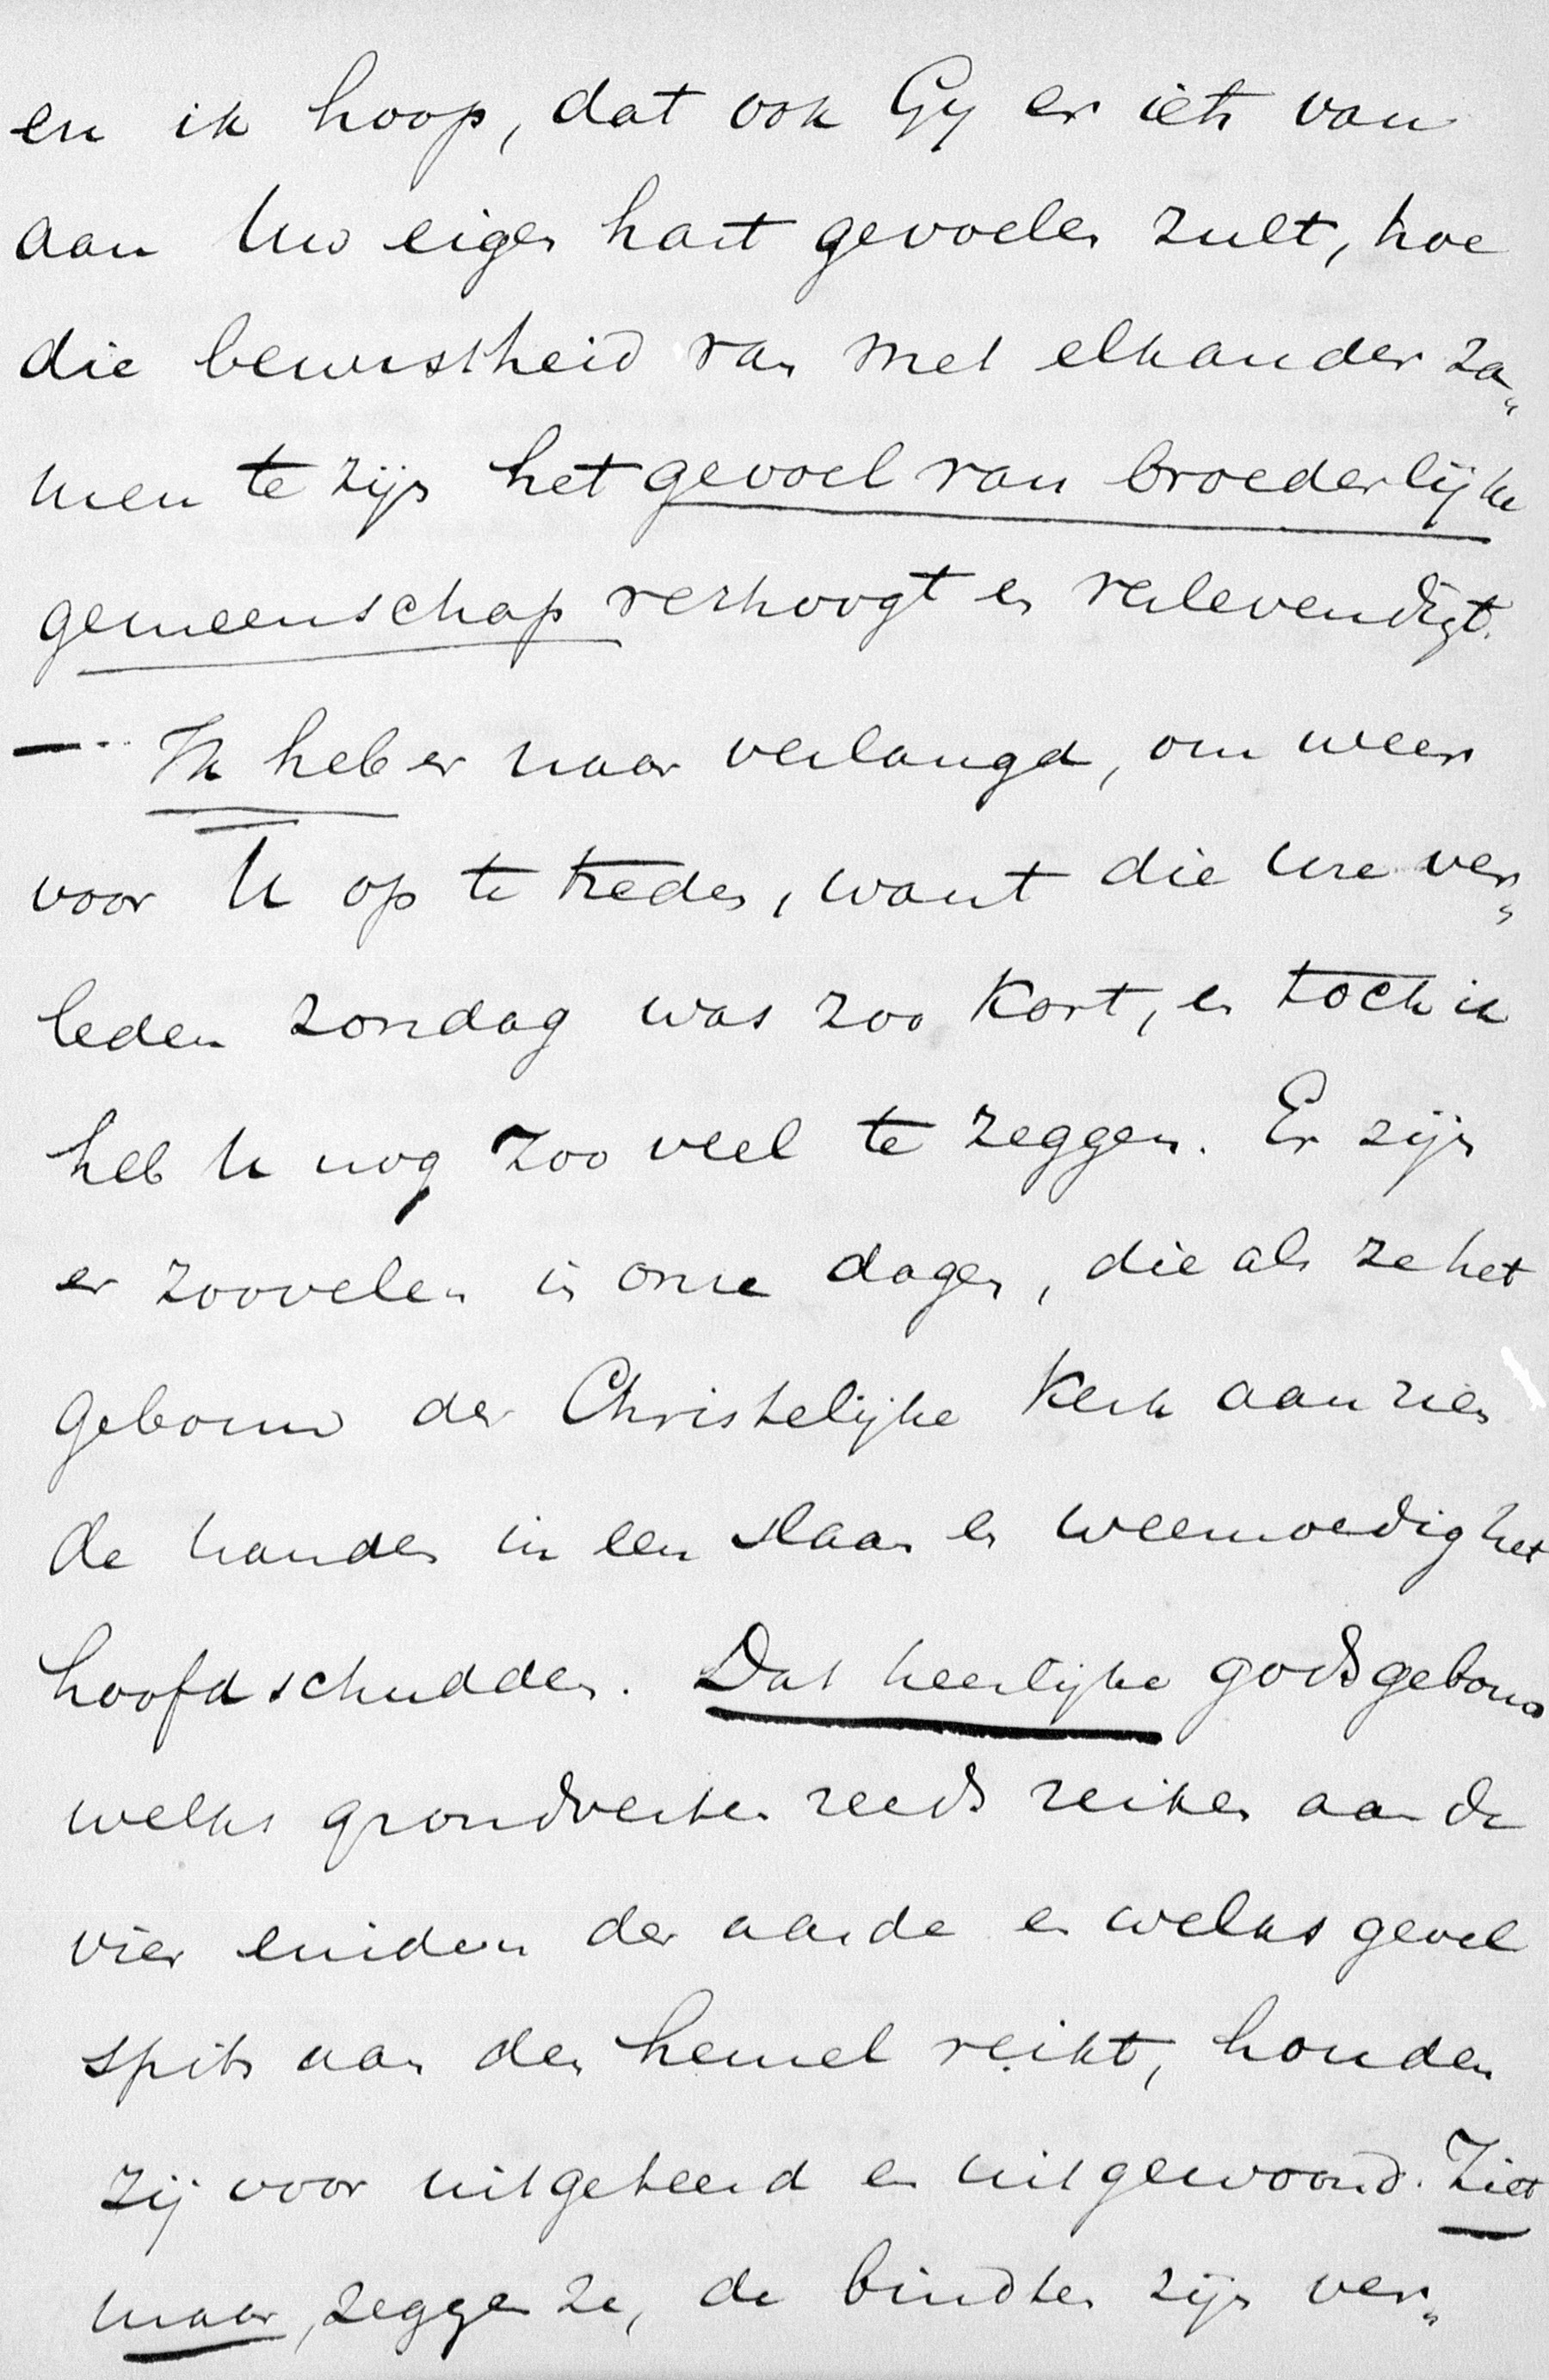 en ik hoop, dat ook Gy er iets van
aan Uw eigen hart gevoelen zult, hoe
die bewustheid van met elkander za„
men te zijn het gevoel van broederlijke
gemeenschap verhoogt en verlevendigt.
— Ik heb er naar verlangd, om weer
voor U op te treden, want die ure ver„
leden zondag was zoo kort, en toch ik
heb U nog zoo veel te zeggen. Er zijn
er zoovelen in onze dagen, die als ze het
gebouw der Christelijke Kerk aanzien
de handen in een slaan en weemoedig het
hoofdschudden. Dat heerlijke godsgebouw
welks grondvesten reeds reiken aan de
vier einden der aarde en welks gevel
spits aan den hemel reikt, houden
zij voor uitgeteerd en uitgewoond. Ziet
maar, zeggen ze, de bindten zijn ver„